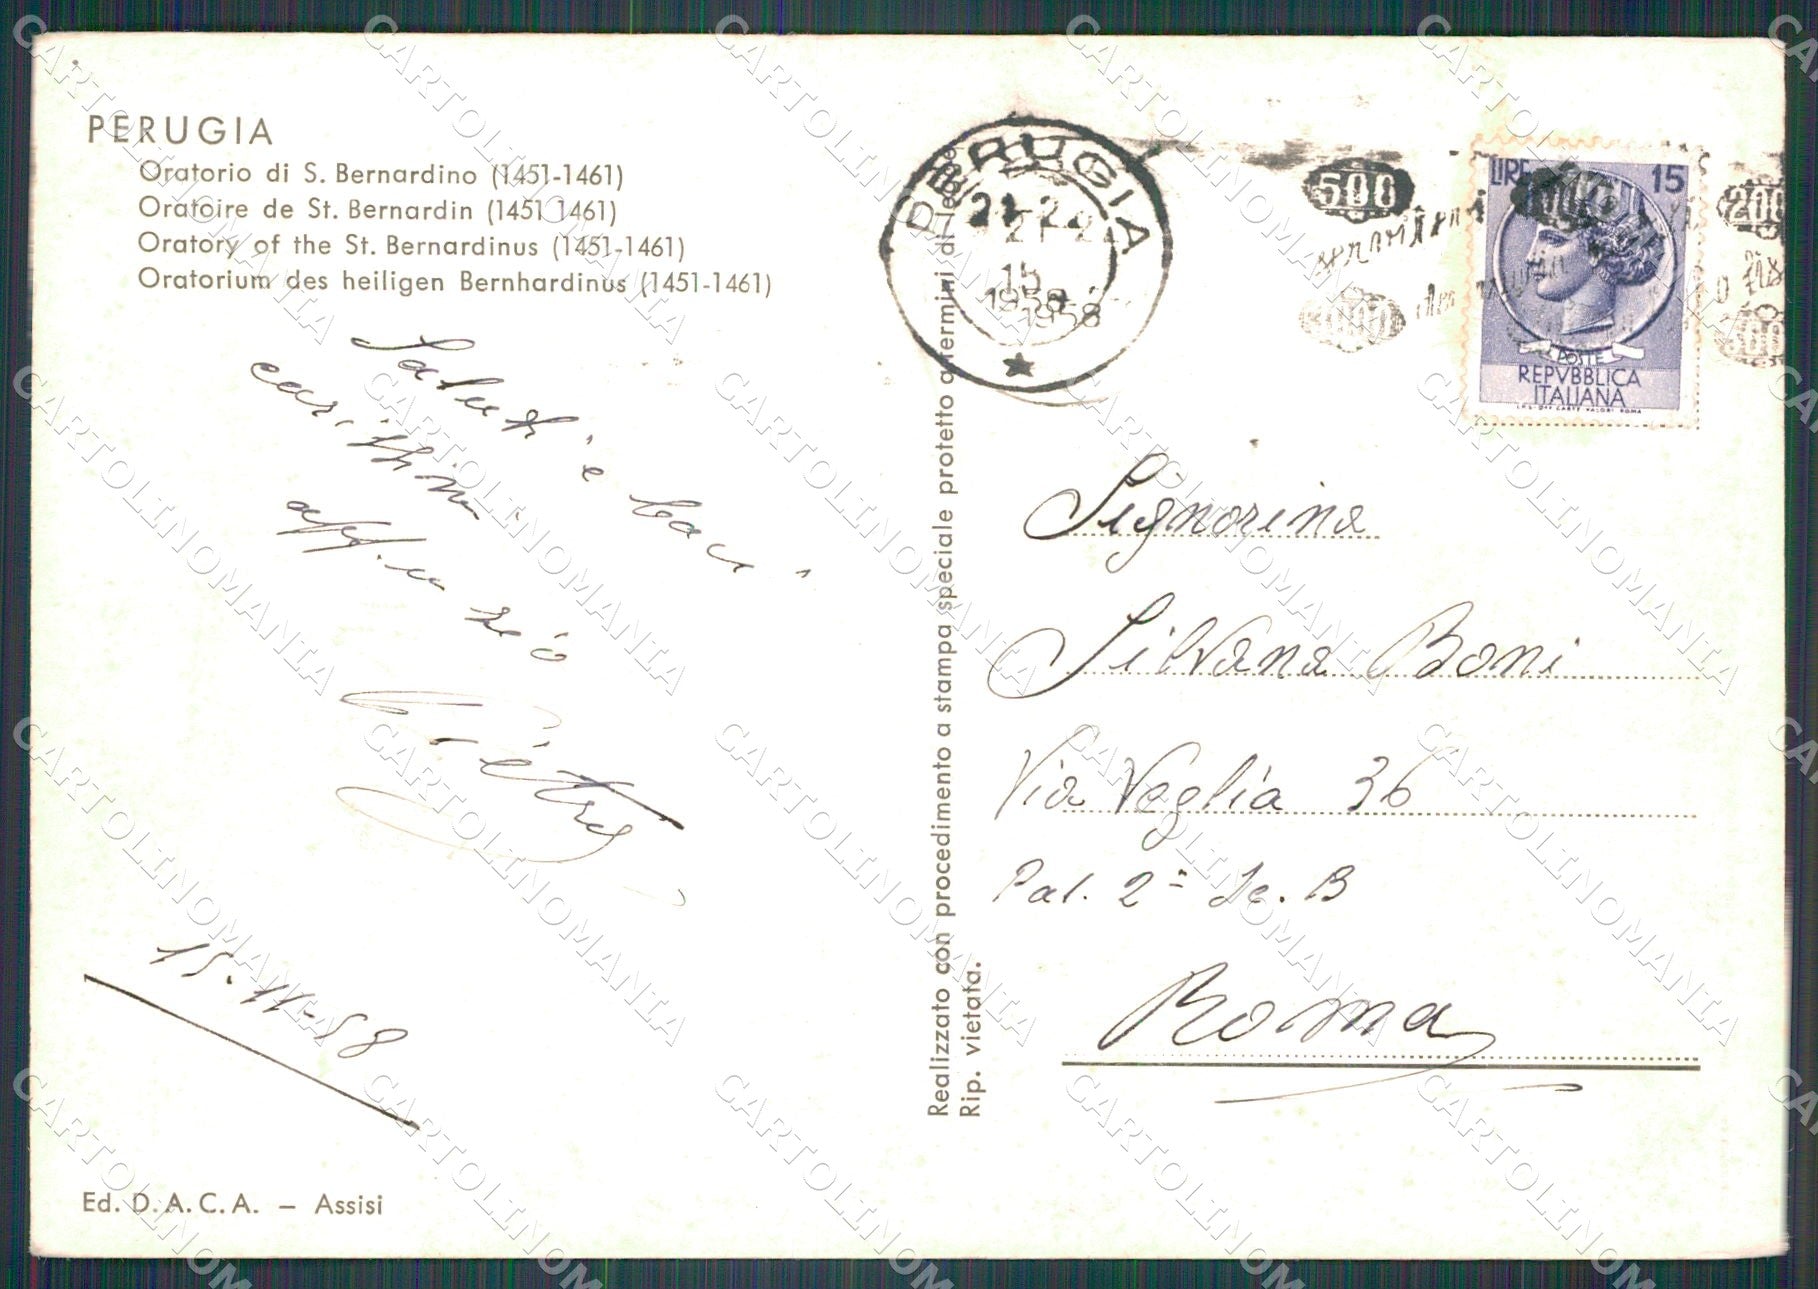 PERUGIA
Oratorio di S. Bernardino (1451-1461)
Oratoire de St. Bernardin (1451 1461)
Oratory of the St. Bernardinus (1451-1461)
Oratorium des heiligen Bernhardinus (1451-1461)
Saluti e baci
carissimi
aff.
Pietro
15-11-58
Ed. D. A. C. A. – Assisi
Realizzato con procedimento a stampa speciale protetto a termini di legge
Rip. vietata.
PERUGIA
21-22
21-22
15
1958
1958
500
200
1000
500
LIRE 15
POSTE
REPVBBLICA
ITALIANA
I.P.S-OFF. CARTE VALORI ROMA
Signorina
Silvana Boni
Via Veglia 36
Pal. 2= Sc. B
Roma
CARTOLINOMANIA